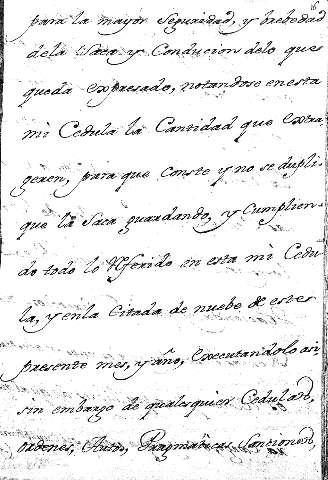 16
para la mayor seguridad, y brebedad
dela saca y Conducion delo que
queda expresado, notandose en esta
mi Cedula la Cantidad que extra
geren, para que conste y no se dupli-
que la saca guardando, y cumplien-
do todo lo Referido en esta mi Cedu
la, y enla Citada de nuebe de este
presente mes, y año, executandolo asi,
sin embargo de qualesquier Cedulas,
ordenes, Autos, Pragmaticas Sanciones,